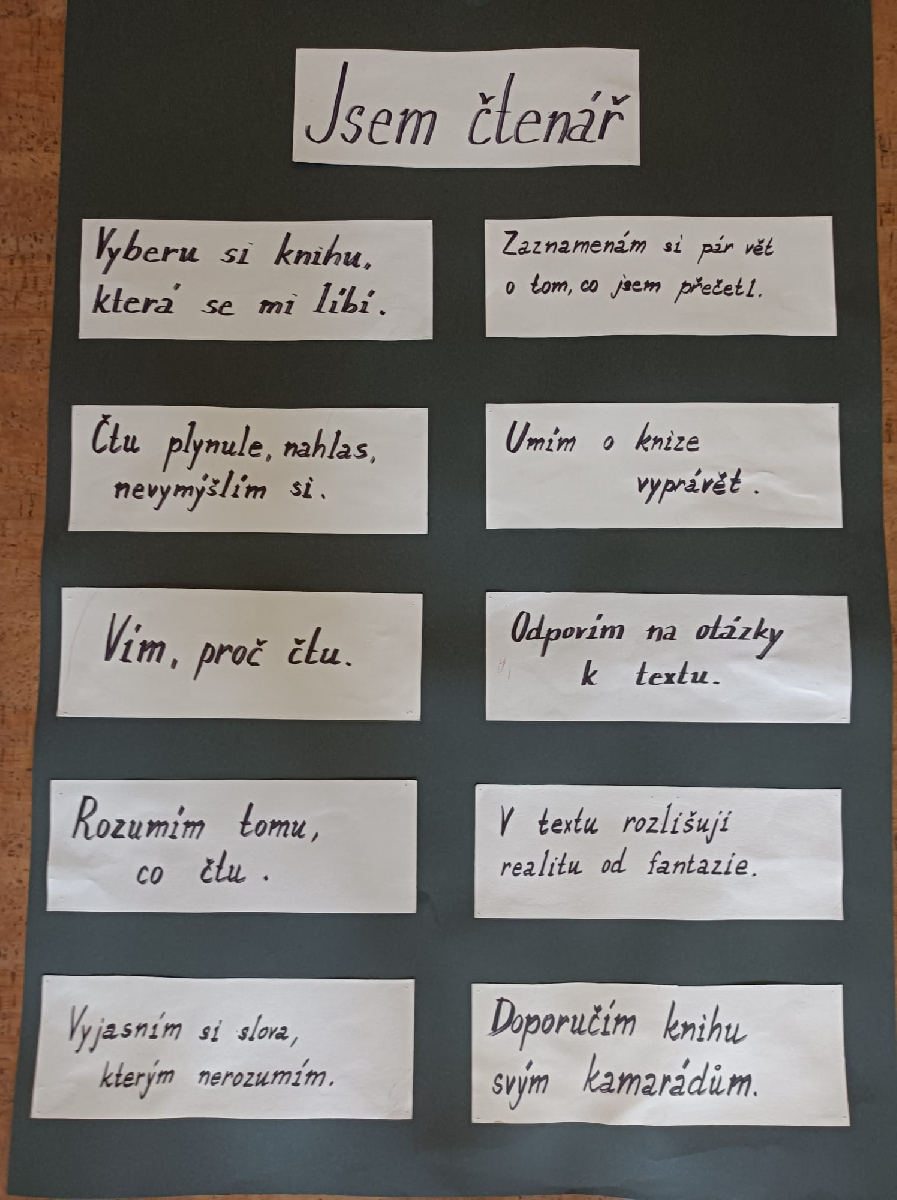 Jsem čtenář
Vyberu si knihu,
která se mi líbí.
Čtu plynule, nahlas,
nevymýšlím si.
Vím, proč čtu.
Rozumím tomu,
co čtu.
Vyjasním si slova,
kterým nerozumím.
Zaznamenám si pár vět
o tom, co jsem přečetl.
Umím o knize
vyprávět.
Odpovím na otázky
k textu.
V textu rozlišuji
realitu od fantazie.
Doporučím knihu
svým kamarádům.